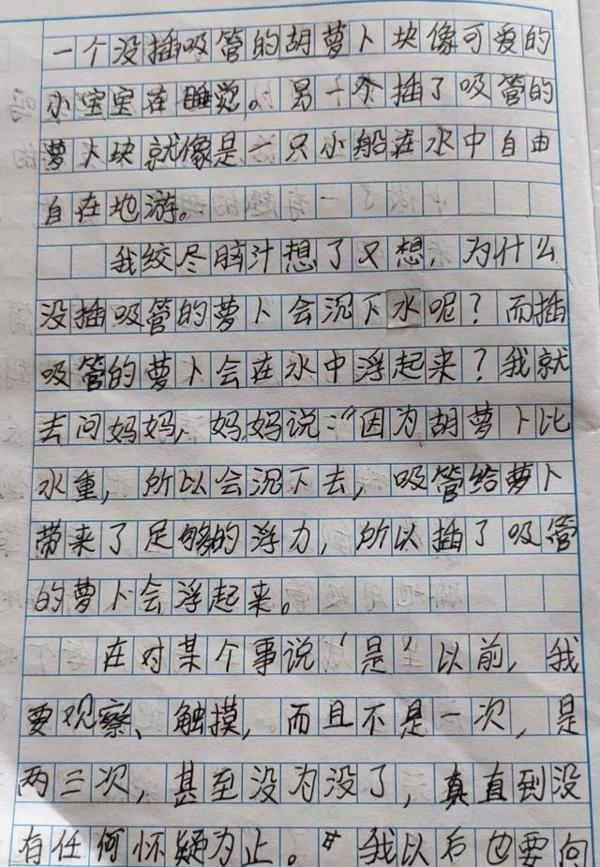 一个没插吸管的胡萝卜块像可爱的
小宝宝在睡觉。另一个插了吸管的
萝卜块就像是一只小船在水中自由
自在地游。
我绞尽脑汁想了又想，为什么
没插吸管的萝卜会沉下水呢？而插
吸管的萝卜会在水中浮起来？我就
去问妈妈，妈妈说：“因为胡萝卜比
水重，所以会沉下去，吸管给萝卜
带来了足够的浮力，所以插了吸管
的萝卜会浮起来。
在对某个事说‘是’以前，我
要观察、触摸，而且不是一次，是
两三次，甚至没为没了，真直到没
有任何怀疑为止。我以后也要向